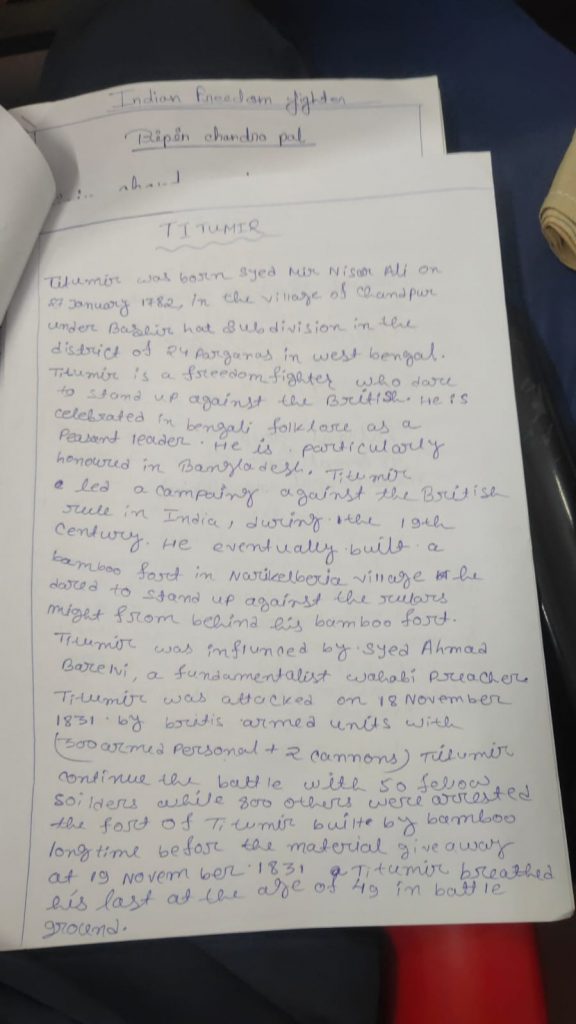 Indian Freedom fighter
Bipin chandra pal
TITUMIR
Titumir was born Syed Mir Nisar Ali on
27 January 1782, in the village of Chandpur
under Bashir hat Subdivision in the
district of 24 Parganas in west bengal.
Titumir is a freedom fighter who dare
to stand up against the British. He is
celebrated in bengali folklare as a
Peasant leader. He is particularly
honoured in Bangladesh. Titumir
led a campaing against the British
rule in India, during the 19th
Century. He eventually built a
bamboo fort in Narikelberia village he
dared to stand up against the rulars
might from behind his bamboo fort.
Titumir was influnced by Syed Ahmad
Barelvi, a fundamentalist wahabi Preacher.
Titumir was attacked on 18 November
1831 by britis armed units with
(300 armed Personal + 2 cannons) Titumir
continue the battle with 50 fellow
Soilders while 800 others were arrested
the fort of Titumir builte by bamboo
longtime befor the material give away
at 19 November 1831 Titumir breathed
his last at the age of 49 in battle
ground.